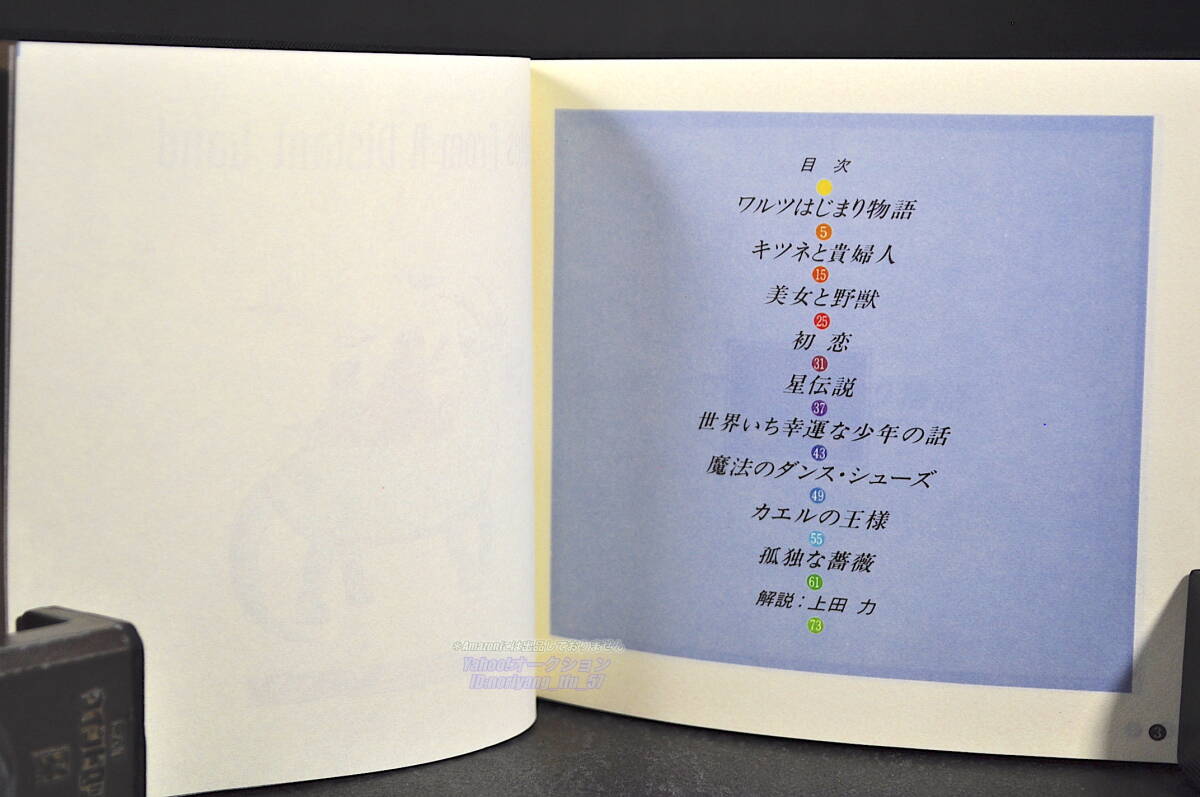 目 次
ワルツはじまり物語
5
キツネと貴婦人
15
美女と野獣
25
初 恋
31
星伝説
37
世界いち幸運な少年の話
43
魔法のダンス・シューズ
49
カエルの王様
55
孤独な薔薇
61
解説：上田 力
73
3
※Amazonには出品しておりません
Yahoo!オークション